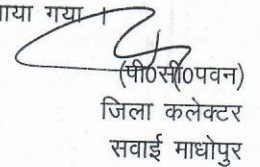 ाया गया ।
(पी0सी0पवन)
जिला कलेक्टर
सवाई माधोपुर